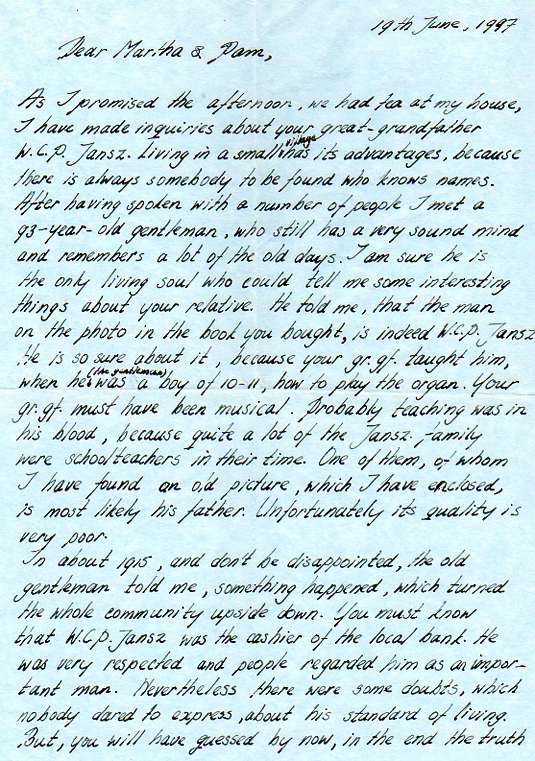 19th June, 1997
Dear Martha & Pam,
As I promised the afternoon, we had tea at my house,
I have made inquiries about your great-grandfather
W.C.P. Jansz. Living in a small village has its advantages, because
there is always somebody to be found who knows names.
After having spoken with a number of people I met a
93-year-old gentleman, who still has a very sound mind
and remembers a lot of the old days. I am sure he is
the only living soul who could tell me some interesting
things about your relative. He told me, that the man
on the photo in the book you bought, is indeed W.C.P. Jansz
He is so sure about it, because your gr.gf. taught him,
when he (the gentleman) was a boy of 10-11, how to play the organ. Your
gr.gf. must have been musical. Probably teaching was in
his blood, because quite a lot of the Jansz family
were schoolteachers in their time. One of them, of whom
I have found an old picture, which I have enclosed,
is most likely his father. Unfortunately its quality is
very poor.
In about 1915, and don't be disappointed, the old
gentleman told me, something happened, which turned
the whole community upside down. You must know
that W.C.P. Jansz was the cashier of the local bank. He
was very respected and people regarded him as an impor-
tant man. Nevertheless there were some doubts, which
nobody dared to express, about his standard of living.
But, you will have guessed by now, in the end the truth